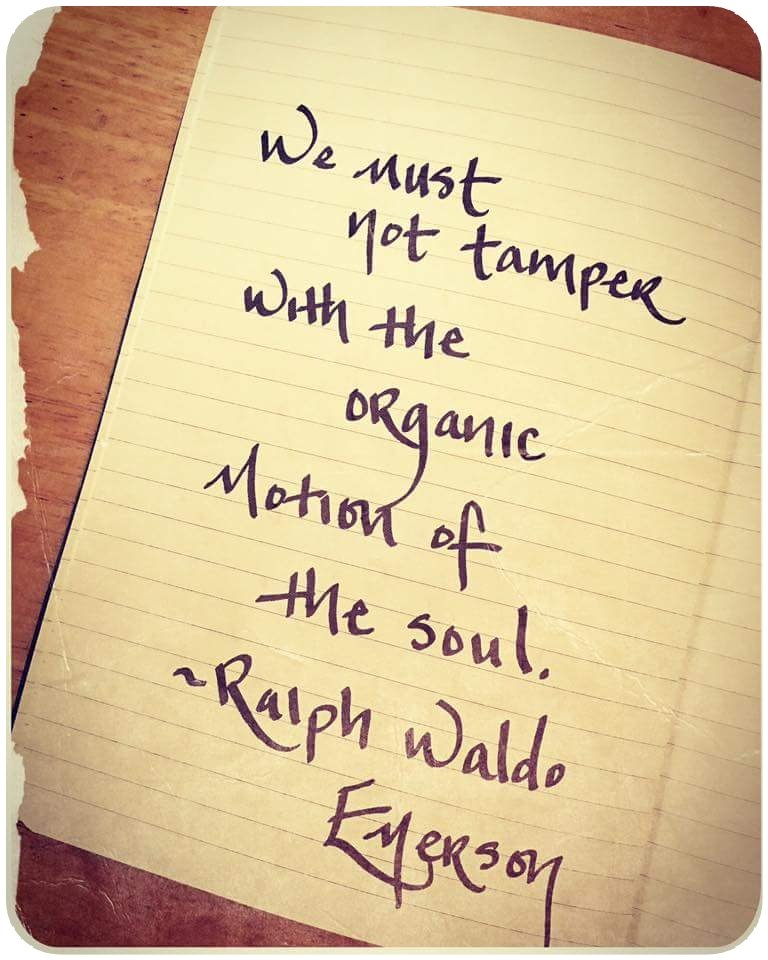 We must
not tamper
with the
organic
motion of
the soul.
~Ralph Waldo
Emerson